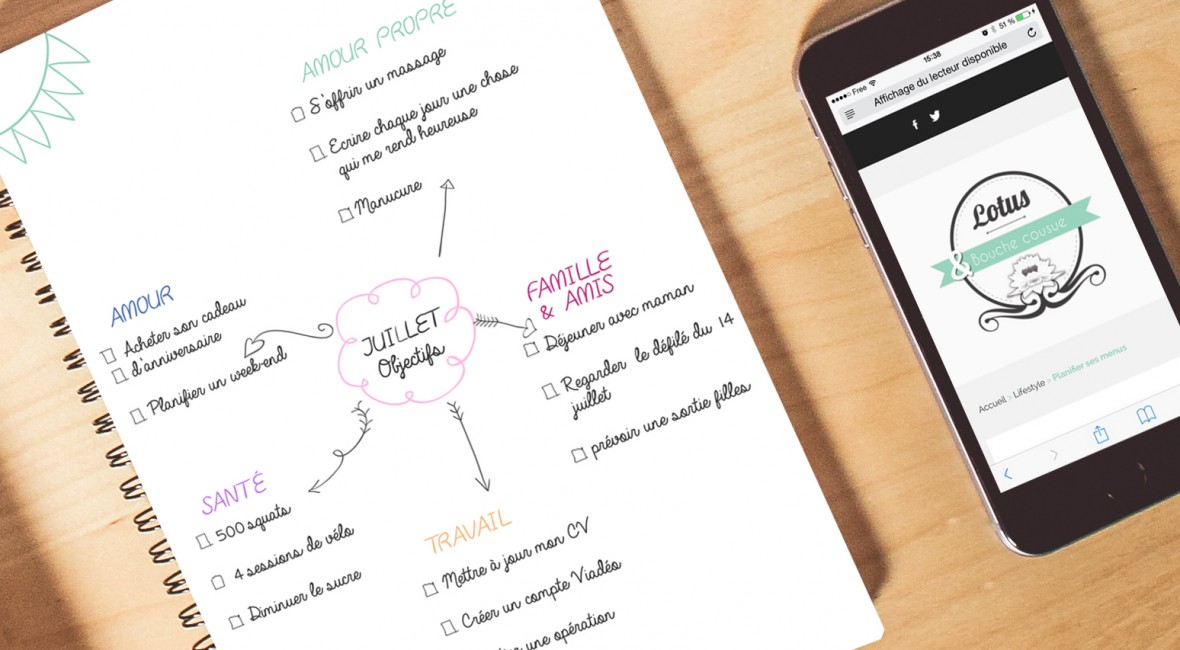 AMOUR PROPRE
S'offrir un massage
Ecrire chaque jour une chose
qui me rend heureuse
Manucure
AMOUR
Acheter son cadeau
d'anniversaire
Planifier un week-end
JUILLET
Objectifs
FAMILLE
& AMIS
Déjeuner avec maman
Regarder le défilé du 14
juillet
prévoir une sortie filles
SANTÉ
500 squats
4 sessions de vélo
Diminuer le sucre
TRAVAIL
Mettre à jour mon CV
Créer un compte Viadéo
une opération
Free
15:38
51 %
Affichage du lecteur disponible
Lotus
& Bouche cousue
Accueil > Lifestyle > Planifier ses menus